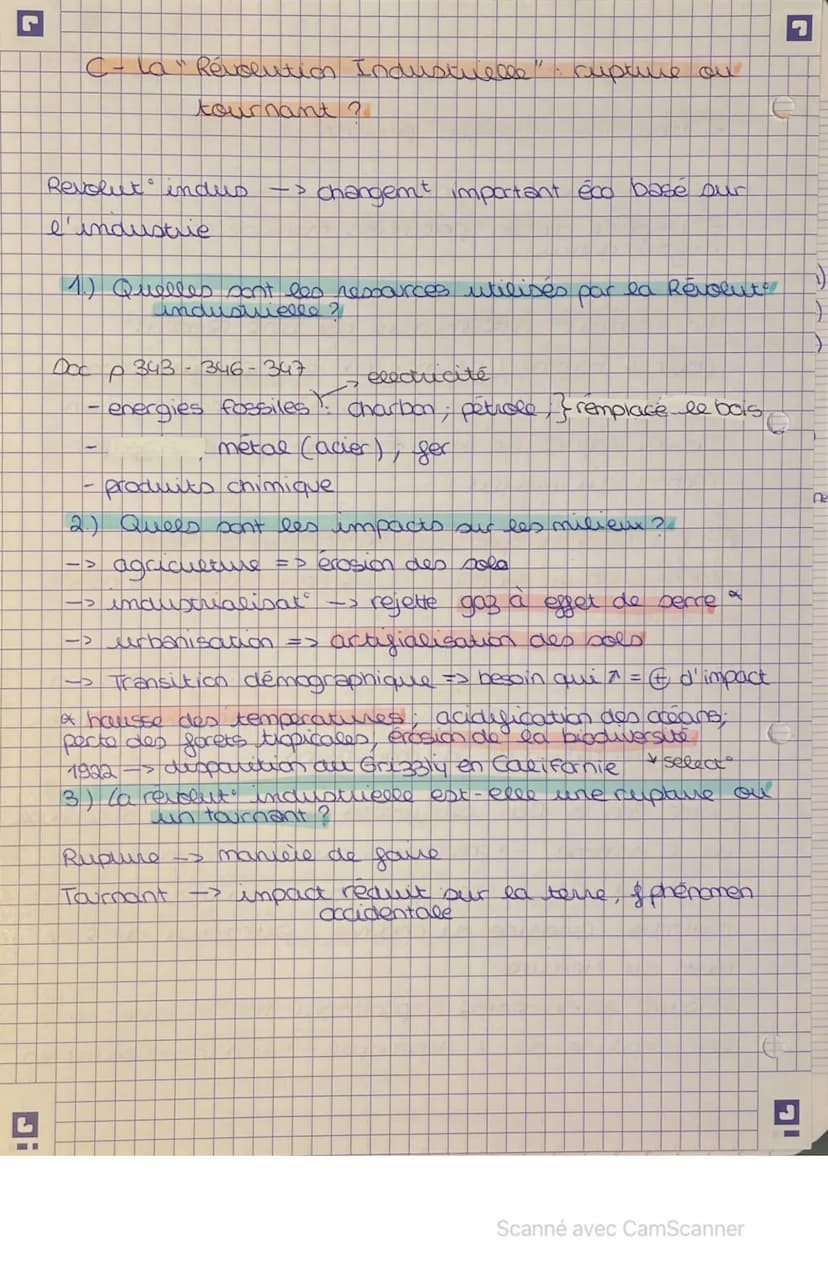 C- La "Révolution Industrielle" : rupture ou
tournant ?
Revolut° indus -> changemt important éco basé sur
l'industrie
1.) Quelles sont les ressources utilisés par la Révolut°
industrielle ?
Doc p 343 - 346 - 347
-> electricité
- energies fossiles : charbon, pétrole, } remplace le bois
- métal (acier), fer
- produits chimique
2.) Quels sont les impacts sur les milieux ?
-> agriculture => érosion des sols
-> industrialisat° -> rejette gaz à effet de serre *
-> urbanisation => artificialisation des sols
-> Transition démographique => besoin qui ↗ = ⊕ d'impact
* hausse des temperatures, acidification des océans,
perte des forets tropicales, érosion de la biodiversité
1922 -> disparition du Grizzly en Californie * select°
3) La révolut° industrielle est-elle une rupture ou
un tournant ?
Rupture -> manière de faire
Tournant -> impact réduit sur la terre, phénomen
occidentale
Scanné avec CamScanner